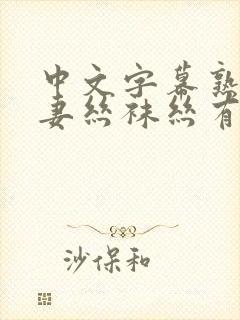 中文字幕熟
妻丝袜丝有
沙保和